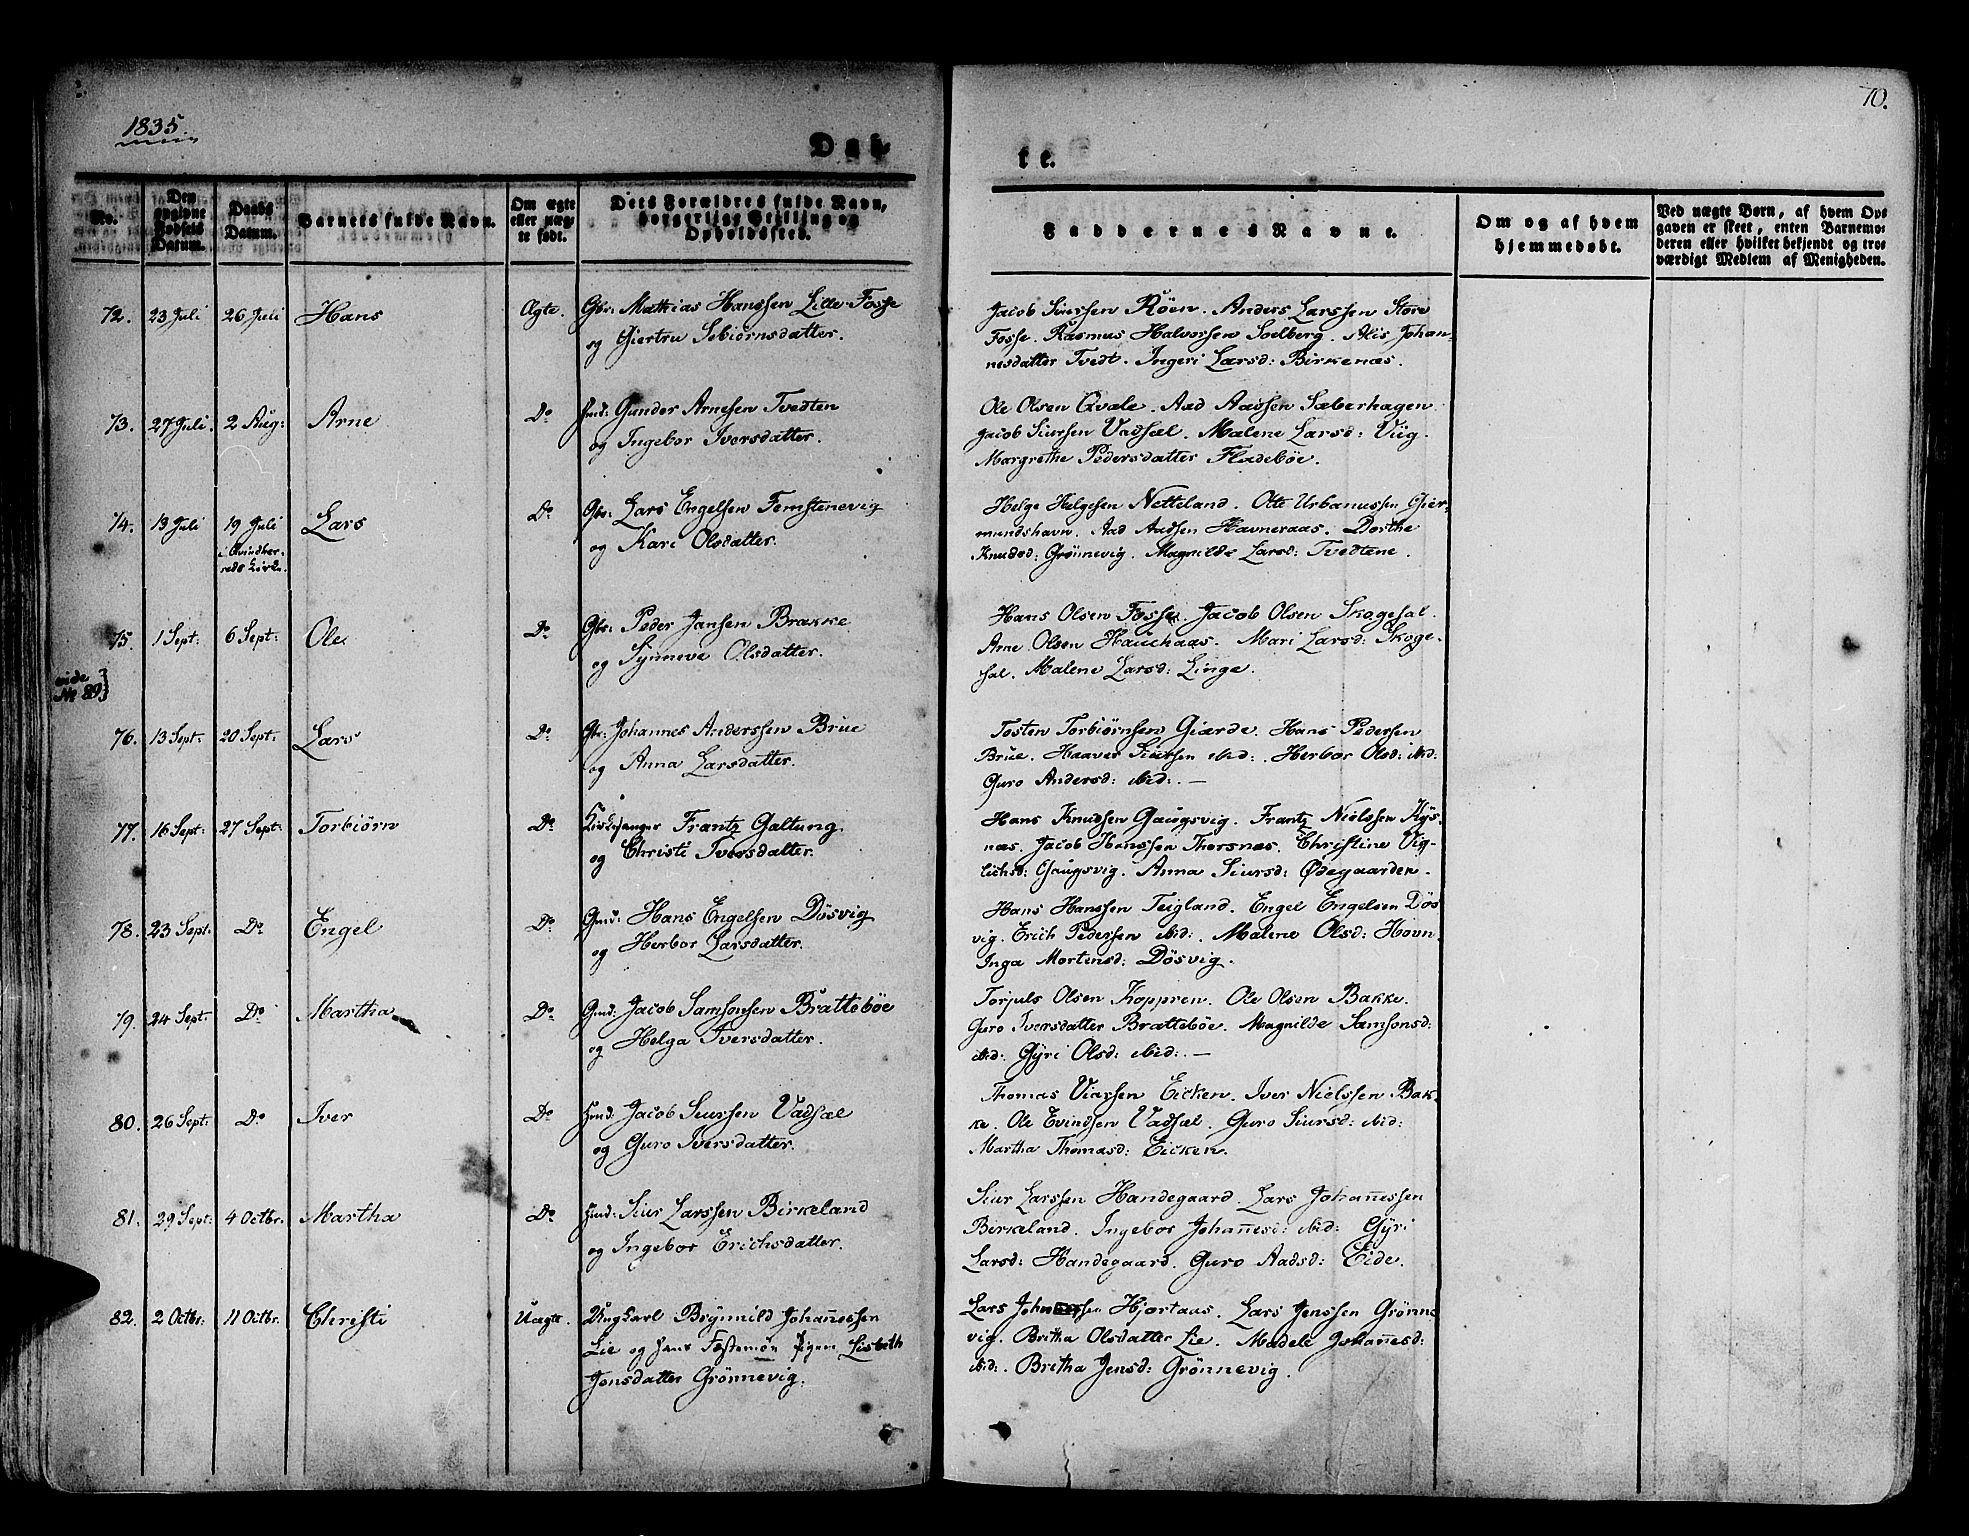 1835.
70.
Døb-
te.
No.
Den
egivne
Fødsels
Datum.
Daabs
Datum.
Barnets fulde Navn.
Om ægte
eller uæg-
te født.
Dets Forældres fulde Navn,
borgerlige Stilling og
Opholdssted.
Faddernes Navne.
Om og af hvem
hjemmedøbt.
Ved uægte Børn, af hvem Op-
gaven er skeet, enten Barnemo-
deren eller hvilket bekjendt og tro-
værdigt Medlem af Menigheden.
72. 23 Juli 26 Juli Hans Ægte. Gbr: Mathias Hanssen Lille-Fosse
og Giertru Sebiörnsdatter.
Jacob Siursen Röen. Anders Larssen Store
Fosse. Rasmus Halvorsen Soelberg. Alis Johan-
nesdatter Tvedt. Ingeri Larsd: Birkenæs.
73. 27 Juli. 2 Aug: Arne Do Huusd: Gunder Arnesen Tvedten
og Ingebor Iversdatter.
Ole Olsen Qvale. Aad Aadsen Sæberhagen.
Jacob Siursen Vadsæl. Malene Larsd: Viig.
Margrethe Pedersdatter Fladeböe.
74. 13 Juli 19 Juli Lars Do Gbr: Lars Engelsen Femstenevig
i Qvindher-
reds Kirke.
og Kari Olsdatter.
Helge Helgesen Netteland. Otte Urbanussen Gier-
mundshavn. Aad Aadsen Havneraas. Dorthe
Knudsd: Grönnevig. Magnilde Larsd: Tvedtene.
75. 1 Sept: 6 Sept: Ole Do Gbr: Peder Jansen Brække
og Synneve Olsdatter.
Hans Olsen Fosse. Jacob Olsen Skogesal.
Arne Olsen Hauchaas. Mari Larsd: Skoge-
sal. Malene Larsd: Linge.
vide
No 89
76. 13 Sept: 20 Sept: Lars Do Gbr: Johannes Anderssen Brue
og Anna Larsdatter.
Tosten Torbiörnsen Giærde. Hans Pedersen
Brue. Haaver Siursen ibid:. Herbor Olsd: ibid:
Guro Andersd: ibid:. —
77. 16 Sept: 27 Sept: Torbiörn Do Kirkesanger Frantz Galtung
og Christi Iversdatter.
Hans Knudsen Gaugsvig. Frantz Nielssen Kys-
næs. Jacob Hanssen Thorsnæs. Christine Vig-
lichsd: Gaugsvig. Anna Siursd: Ødegaarden.
78. 23 Sept. Do Engel Do Gmd: Hans Engelsen Dösvig
og Herbor Larsdatter.
Hans Hanssen Teigland. Engel Engelsen Dös
vig. Erich Pedersen ibid:. Malene Olsd: Hovn.
Inga Mortensd: Dösvig.
79. 24 Sept: Do Martha Do Gmd: Jacob Samsonsen Bratteböe
og Helga Iversdatter.
Torjuls Olsen Koppren. Ole Olsen Bakke.
Guro Iversdatter Bratteböe. Magnilde Samsonsd:
ibid:. Gÿri Olsd: ibid:. —
80. 26 Sept: Do Iver Do Huusd: Jacob Siursen Vadsæl
og Guro Iversdatter.
Thomas Viarsen Eicken. Iver Nielssen Bak-
ke. Ole Evindsen Vadsæl. Guro Siursd: ibid:
Martha Thomasd: Eicken.
81. 29 Sept: 4 Octbr. Martha Do Huusd: Siur Larssen Birkeland
og Ingebor Erichsdatter.
Siur Larssen Handegaard. Lars Johañessen
Birkeland. Ingebor Johañesd: ibid: Gÿri
Larsd: Handegaard. Guro Aadsd: Eide.
82. 2 Octbr: 11 Octbr. Christi Uægte. Ungkarl Brÿnnild Johañessen
Lie og hans Fæstemöe Pigen Lisbeth
Jonsdatter Grönnevig.
Lars Hjortaas. Lars Jenssen Grönne
vig. Britha Olsdatter Lie. Madele Johañesd:
ibid:. Britha Jensd: Grönnevig.